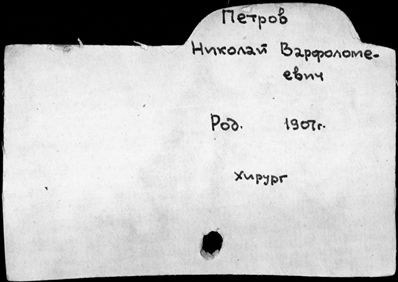 Петров
Николай Варфоломе-
евич
Род. 1907г.
хирург